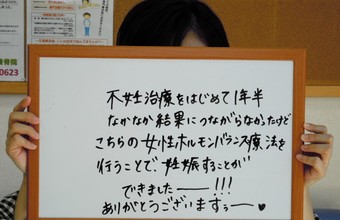 0623
不妊治療をはじめて1年半
なかなか結果につながらなかったけど
こちらの女性ホルモンバランス療法を
行うことで、妊娠することが
できましたーー!!!
ありがとうございますぅー♥